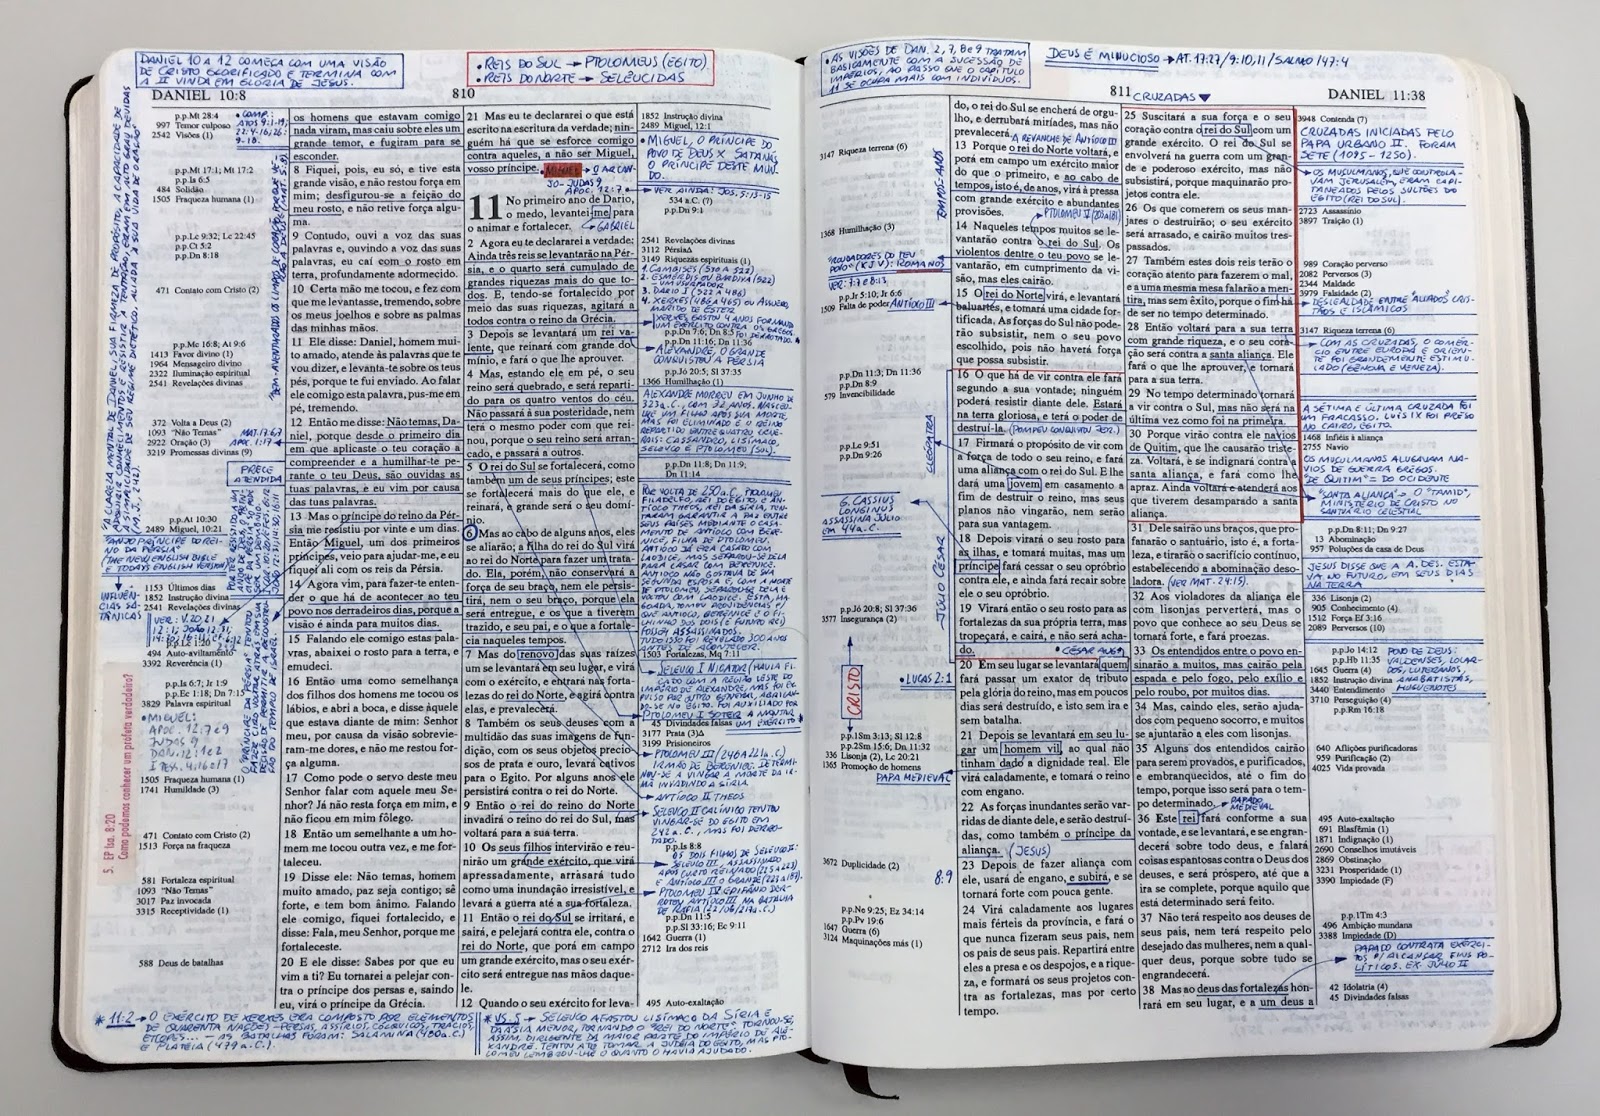 DANIEL 10 A 12 COMEÇA COM UMA VISÃO
DE CRISTO GLORIFICADO E TERMINA COM
A II VINDA EM GLÓRIA DE JESUS.
• REIS DO SUL → PTOLOMEUS (EGITO).
• REIS DO NORTE → SELÊUCIDAS
DANIEL 10:8
810
p.p.Mt 28:4
997 Temor culposo
2542 Visões (1)
p.p.Mt 17:1; Mt 17:2
p.p.Is 6:5
484 Solidão
1505 Fraqueza humana (1)
p.p.Lc 9:32; Lc 22:45
p.p.Ct 5:2
p.p.Dn 8:18
471 Contato com Cristo (2)
p.p.Mc 16:8; At 9:6
1413 Favor divino (1)
1964 Mensageiro divino
2322 Iluminação espiritual
2541 Revelações divinas
372 Volta a Deus (2)
1093 “Não Temas”
2922 Oração (3)
3219 Promessas divinas (9)
PRECE
ATENDIDA
p.p.At 10:30
2489 Miguel, 10:21
1153 Últimos dias
1852 Instrução divina
2541 Revelações divinas
494 Auto-aviltamento
3392 Reverência (1)
p.p.Is 6:7; Jr 1:9
p.p.Ec 1:18; Dn 7:15
3829 Palavra espiritual
• MIGUEL:
APOC. 12:7 e 9
JUDAS 9
DAN. 12:1 e 2
I TESS. 4:16 e 17
1505 Fraqueza humana (1)
1741 Humildade (3)
471 Contato com Cristo (2)
1513 Força na fraqueza
581 Fortaleza espiritual
1093 “Não Temas”
3017 Paz invocada
3315 Receptividade (1)
588 Deus de batalhas
5. EP Isa. 8:20
Como podemos conhecer um profeta verdadeiro?
os homens que estavam comigo
nada viram, mas caiu sobre eles um
grande temor, e fugiram para se
esconder.
8 Fiquei, pois, eu só, e tive esta
grande visão, e não restou força em
mim; desfigurou-se a feição do
meu rosto, e não retive força algu-
ma.
9 Contudo, ouvi a voz das suas
palavras e, ouvindo a voz das suas
palavras, eu caí com o rosto em
terra, profundamente adormecido.
10 Certa mão me tocou, e fez com
que me levantasse, tremendo, sobre
os meus joelhos e sobre as palmas
das minhas mãos.
11 Ele disse: Daniel, homem mui-
to amado, atende às palavras que te
vou dizer, e levanta-te sobre os teus
pés, porque a ti fui enviado. Ao falar
ele comigo esta palavra, pus-me em
pé, tremendo.
12 Então me disse: Não temas, Da-
niel, porque desde o primeiro dia
em que aplicaste o teu coração a
compreender e a humilhar-te pe-
rante o teu Deus, são ouvidas as
tuas palavras, e eu vim por causa
das tuas palavras.
13 Mas o príncipe do reino da Pér-
sia me resistiu por vinte e um dias.
Então Miguel, um dos primeiros
príncipes, veio para ajudar-me, e eu
fiquei ali com os reis da Pérsia.
14 Agora vim, para fazer-te enten-
der o que há de acontecer ao teu
povo nos derradeiros dias, porque a
visão é ainda para muitos dias.
15 Falando ele comigo estas pala-
vras, abaixei o rosto para a terra, e
emudeci.
16 Então uma como semelhança
dos filhos dos homens me tocou os
lábios, e abri a boca, e disse àquele
que estava diante de mim: Senhor
meu, por causa da visão sobrevie-
ram-me dores, e não me restou for-
ça alguma.
17 Como pode o servo deste meu
Senhor falar com aquele meu Se-
nhor? Já não resta força em mim, e
não ficou em mim fôlego.
18 Então um semelhante a um ho-
mem me tocou outra vez, e me for-
taleceu.
19 Disse ele: Não temas, homem
muito amado, paz seja contigo; sê
forte, e tem bom ânimo. Falando
ele comigo, fiquei fortalecido, e
disse: Fala, meu Senhor, porque me
fortaleceste.
20 E ele disse: Sabes por que eu
vim a ti? Eu tornarei a pelejar con-
tra o príncipe dos persas e, saindo
eu, virá o príncipe da Grécia.
21 Mas eu te declararei o que está
escrito na escritura da verdade; nin-
guém há que se esforce comigo
contra aqueles, a não ser Miguel,
vosso príncipe.
11 No primeiro ano de Dario,
o medo, levantei-me para
o animar e fortalecer.
GABRIEL
2 Agora eu te declararei a verdade:
Ainda três reis se levantarão na Pér-
sia, e o quarto será cumulado de
grandes riquezas mais do que to-
dos. E, tendo-se fortalecido por
meio das suas riquezas, agitará a
todos contra o reino da Grécia.
3 Depois se levantará um rei va-
lente, que reinará com grande do-
mínio, e fará o que lhe aprouver.
4 Mas, estando ele em pé, o seu
reino será quebrado, e será reparti-
do para os quatro ventos do céu.
Não passará à sua posteridade, nem
terá o mesmo poder com que rei-
nou, porque o seu reino será arran-
cado, e passará a outros.
5 O rei do Sul se fortalecerá, como
também um de seus príncipes; este
se fortalecerá mais do que ele, e
reinará, e grande será o seu domí-
nio.
6 Mas ao cabo de alguns anos, eles
se aliarão; a filha do rei do Sul virá
ao rei do Norte para fazer um trata-
do. Ela, porém, não conservará a
força de seu braço, nem ele persis-
tirá, nem o seu braço, porque ela
será entregue, e os que a tiverem
trazido, e seu pai, e o que a fortale-
cia naqueles tempos.
7 Mas do renovo das suas raízes
um se levantará em seu lugar, e virá
com o exército, e entrará nas forta-
lezas do rei do Norte, e agirá contra
elas, e prevalecerá.
8 Também os seus deuses com a
multidão das suas imagens de fun-
dição, com os seus objetos precio-
sos de prata e ouro, levará cativos
para o Egito. Por alguns anos ele
persistirá contra o rei do Norte.
9 Então o rei do reino do Norte
invadirá o reino do rei do Sul, mas
voltará para a sua terra.
10 Os seus filhos intervirão e reu-
nirão um grande exército, que virá
apressadamente, arrasará tudo
como uma inundação irresistível, e
levará a guerra até a sua fortaleza.
11 Então o rei do Sul se irritará, e
sairá, e pelejará contra ele, contra o
rei do Norte, que porá em campo
um grande exército, mas o seu exér-
cito será entregue nas mãos daque-
le.
12 Quando o seu exército for leva-
1852 Instrução divina
2489 Miguel, 12:1
• MIGUEL, O PRÍNCIPE DO
POVO DE DEUS X SATANÁS,
O PRÍNCIPE DESTE MUN-
DO.
VER AINDA: JOS. 5:13-15
534 a.C. (?)
p.p.Dn 9:1
2541 Revelações divinas
3112 Pérsia
3149 Riquezas espirituais (1)
1. CAMBISES (530 A 522)
4. XERXES (486 A 465) OU ASSUERO,
MARIDO DE ESTER
p.p.Dn 7:6; Dn 8:5
p.p.Dn 11:16; Dn 11:36
ALEXANDRE, O GRANDE
CONQUISTOU A PÉRSIA
p.p.Jó 20:5; Sl 37:35
1366 Humilhação (1)
ALEXANDRE MORREU EM JUNHO DE
323 a.C., COM 32 ANOS.
p.p.Dn 11:8; Dn 11:9;
Dn 11:14
1503 Fortalezas, Mq 7:11
45 Divindades falsas
3177 Prata (3)
3199 Prisioneiros
PTOLOMEU III (246 A 221 a.C.)
IRMÃO DE BERENICE. DETERMI-
NOU-SE A VINGAR A MORTE DA IR-
MÃ INVADINDO A SÍRIA.
ANTÍOCO II THEOS
p.p.Is 8:8
p.p.Dn 11:5
p.p.Sl 33:16; Ec 9:11
1642 Guerra (1)
2712 Ira dos reis
495 Auto-exaltação
* 11:2 → O EXÉRCITO DE XERXES ERA COMPOSTO POR ELEMENTOS
DE QUARENTA NAÇÕES - PERSAS, ASSÍRIOS, CÓLQUICOS, TRÁCIOS,
ETÍOPES... — AS BATALHAS FORAM: SALAMINA (480 a.C.)
E PLATEIA (479 a.C.).
* VS. 5 → SELEUCO AFASTOU LISÍMACO DA SÍRIA E
DA ÁSIA MENOR, TORNANDO O “REI DO NORTE”. TORNOU-SE,
ASSIM, DIRIGENTE DA MAIOR PARTE DO IMPÉRIO DE ALE-
XANDRE. TENTOU ATÉ TOMAR A JUDÉIA DO EGITO, MAS PTO-
LOMEU LEMBROU-LHE O QUANTO O HAVIA AJUDADO.
• AS VISÕES DE DAN. 2, 7, 8 e 9 TRATAM
BASICAMENTE COM A SUCESSÃO DE
IMPÉRIOS, AO PASSO QUE O CAPÍTULO
11 SE OCUPA MAIS COM INDIVÍDUOS.
DEUS É MINUCIOSO → AT. 17:27 / 9:10,11 / SALMO 147:4
811
CRUZADAS
DANIEL 11:38
3147 Riqueza terrena (6)
1368 Humilhação (3)
p.p.Jr 5:10; Jr 6:6
1509 Falta de poder
ANTÍOCO III
p.p.Dn 11:3; Dn 11:36
p.p.Dn 8:9
579 Invencibilidade
CLEÓPATRA
p.p.Lc 9:51
p.p.Dn 9:26
G. CASSIUS
LONGINUS
ASSASSINA JÚLIO
EM 44 a.C.
JÚLIO CÉSAR
p.p.Jó 20:8; Sl 37:36
3577 Insegurança (2)
• LUCAS 2:1
CRISTO
p.p.1Sm 3:13; Sl 12:8
p.p.2Sm 15:6; Dn 11:32
336 Lisonja (2), Lc 20:21
1365 Promoção de homens
PAPA MEDIEVAL
3672 Duplicidade (2)
8:9
p.p.Ne 9:25, Ez 34:14
p.p.Pv 19:6
1647 Guerra (6)
3124 Maquinações más (1)
do, o rei do Sul se encherá de orgu-
lho, e derrubará miríades, mas não
prevalecerá.
A REVANCHE DE ANTÍOCO III
13 Porque o rei do Norte voltará, e
porá em campo um exército maior
do que o primeiro, e ao cabo de
tempos, isto é, de anos, virá à pressa
com grande exército e abundantes
provisões.
14 Naqueles tempos muitos se le-
vantarão contra o rei do Sul. Os
violentos dentre o teu povo se le-
vantarão, em cumprimento da vi-
são, mas eles cairão.
15 O rei do Norte virá, e levantará
baluartes, e tomará uma cidade for-
tificada. As forças do Sul não pode-
rão subsistir, nem o seu povo
escolhido, pois não haverá força
que possa subsistir.
16 O que há de vir contra ele fará
segundo a sua vontade; ninguém
poderá resistir diante dele. Estará
na terra gloriosa, e terá o poder de
destruí-la.
17 Firmará o propósito de vir com
a força de todo o seu reino, e fará
uma aliança com o rei do Sul. E lhe
dará uma jovem em casamento a
fim de destruir o reino, mas seus
planos não vingarão, nem serão
para sua vantagem.
18 Depois virará o seu rosto para
as ilhas, e tomará muitas, mas um
príncipe fará cessar o seu opróbrio
contra ele, e ainda fará recair sobre
ele o seu opróbrio.
19 Virará então o seu rosto para as
fortalezas da sua própria terra, mas
tropeçará, e cairá, e não será acha-
do.
20 Em seu lugar se levantará quem
fará passar um exator de tributo
pela glória do reino, mas em poucos
dias será destruído, e isto sem ira e
sem batalha.
21 Depois se levantará em seu lu-
gar um homem vil, ao qual não
tinham dado a dignidade real. Ele
virá caladamente, e tomará o reino
com engano.
22 As forças inundantes serão var-
ridas de diante dele, e serão destruí-
das, como também o príncipe da
aliança. (JESUS)
23 Depois de fazer aliança com
ele, usará de engano, e subirá, e se
tornará forte com pouca gente.
24 Virá caladamente aos lugares
mais férteis da província, e fará o
que nunca fizeram seus pais, nem
os pais de seus pais. Repartirá entre
eles a presa e os despojos, e a rique-
za, e formará os seus projetos con-
tra as fortalezas, mas por certo
tempo.
25 Suscitará a sua força e o seu
coração contra o rei do Sul com um
grande exército. O rei do Sul se
envolverá na guerra com um gran-
de e poderoso exército, mas não
subsistirá, porque maquinarão pro-
jetos contra ele.
26 Os que comerem os seus manja-
res o destruirão; o seu exército
será arrasado, e cairão muitos tres-
passados.
27 Também estes dois reis terão o
coração atento para fazerem o mal,
e a uma mesma mesa falarão a men-
tira, mas sem êxito, porque o fim há
de ser no tempo determinado.
28 Então voltará para a sua terra
com grande riqueza, e o seu cora-
ção será contra a santa aliança. Ele
fará o que lhe aprouver, e tornará
para a sua terra.
29 No tempo determinado tornará
a vir contra o Sul, mas não será na
última vez como foi na primeira.
30 Porque virão contra ele navios
de Quitim, que lhe causarão triste-
za. Voltará, e se indignará contra a
santa aliança, e fará como lhe
apraz. Ainda voltará e atenderá aos
que tiverem desamparado a santa
aliança.
31 Dele sairão uns braços, que pro-
fanarão o santuário, isto é, a forta-
leza, e tirarão o sacrifício contínuo,
estabelecendo a abominação deso-
ladora. (VER MAT. 24:15).
32 Aos violadores da aliança ele
com lisonjas perverterá, mas o
povo que conhece ao seu Deus se
tornará forte, e fará proezas.
33 Os entendidos entre o povo en-
sinarão a muitos, mas cairão pela
espada e pelo fogo, pelo exílio e
pelo roubo, por muitos dias.
34 Mas, caindo eles, serão ajuda-
dos com pequeno socorro, e muitos
se ajuntarão a eles com lisonjas.
35 Alguns dos entendidos cairão
para serem provados, e purificados,
e embranquecidos, até o fim do
tempo, porque isso será para o tem-
po determinado.
PAPADO
MEDIEVAL
36 Este rei fará conforme a sua
vontade, e se levantará, e se engran-
decerá sobre todo deus, e falará
coisas espantosas contra o Deus dos
deuses, e será próspero, até que a
ira se complete, porque aquilo que
está determinado será feito.
37 Não terá respeito aos deuses de
seus pais, nem terá respeito pelo
desejado das mulheres, nem a qual-
quer deus, porque sobre tudo se
engrandecerá.
38 Mas ao deus das fortalezas hon-
rará em seu lugar, e a um deus a
3948 Contenda (7)
CRUZADAS INICIADAS PELO
PAPA URBANO II. FORAM
SETE (1095 - 1250).
OS MUSULMANOS, QUE CONTROLA-
VAM JERUSALÉM, ERAM CAPI-
TANEADOS PELOS SULTÕES DO
EGITO (REI DO SUL).
2723 Assassínio
3897 Traição (1)
989 Coração perverso
2082 Perversos (3)
2344 Maldade
3979 Falsidade (2)
DESLEALDADE ENTRE “ALIADOS” CRIS-
TÃOS E ISLÂMICOS
3147 Riqueza terrena (6)
COM AS CRUZADAS, O COMÉR-
CIO ENTRE EUROPA E ORIEN-
TE FOI GRANDEMENTE ESTIMU-
LADO (GÊNOVA E VENEZA).
A SÉTIMA E ÚLTIMA CRUZADA FOI
UM FRACASSO. LUÍS IX FOI PRESO
NO CAIRO, EGITO.
1468 Infiéis à aliança
2755 Navio
OS MUSULMANOS ALUGAVAM NA-
VIOS DE GUERRA GREGOS.
“DE QUITIM” = DO OCIDENTE
“SANTA ALIANÇA” = O “TAMID”,
MINISTÉRIO DE CRISTO NO
SANTUÁRIO CELESTIAL
p.p.Dn 8:11; Dn 9:27
13 Abominação
957 Poluções da casa de Deus
JESUS DISSE QUE A A. DES. ESTA-
VA NO FUTURO, EM SEUS DIAS
NA TERRA
336 Lisonja (2)
905 Conhecimento (4)
1512 Força Ef 3:16
2089 Perversos (10)
p.p.Jo 14:12
p.p.Hb 11:35
1645 Guerra (4)
1852 Instrução divina
3440 Entendimento
3710 Perseguição (4)
p.p.Rm 16:18
POVO DE DEUS:
VALDENSES, LOLAR-
DOS, LUTERANOS,
ANABATISTAS,
HUGUENOTES
640 Aflições purificadoras
959 Purificação (2)
4025 Vida provada
495 Auto-exaltação
691 Blasfêmia (1)
1871 Indignação (1)
2690 Conselhos imutáveis
2869 Obstinação
3231 Prosperidade (1)
3390 Impiedade (F)
p.p.1Tm 4:3
496 Ambição mundana
3388 Impiedade (D)
PAPADO CONTRATA EXÉRCI-
TOS P/ ALCANÇAR FINS PO-
LÍTICOS. EX. JÚLIO II
42 Idolatria (4)
45 Divindades falsas